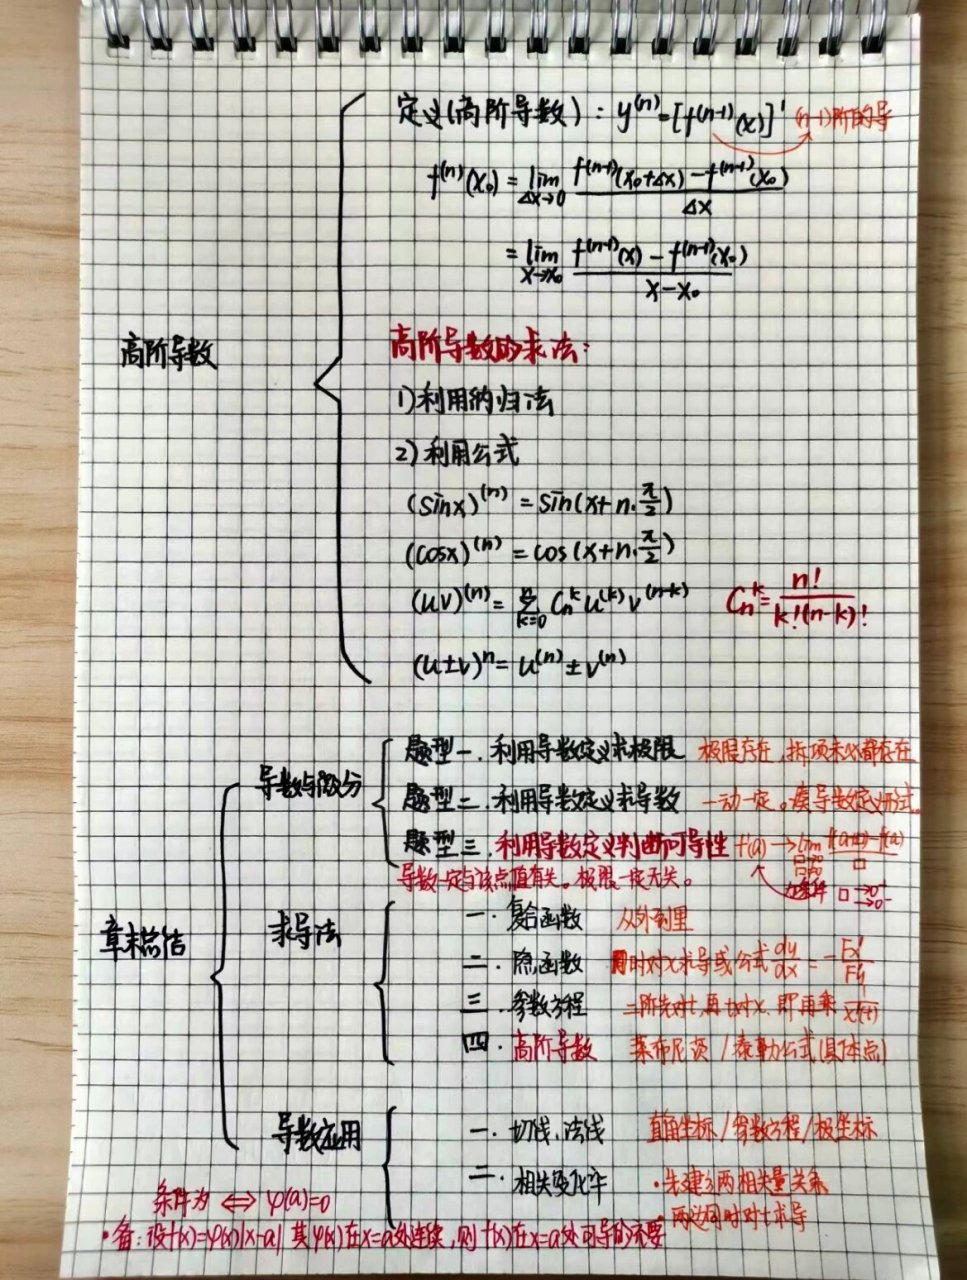 定义(高阶导数): y⁽ⁿ⁾=[f⁽ⁿ⁻¹⁾(x)]' (n-1)阶的导
f⁽ⁿ⁾(x₀) = lim Δx→0 (f⁽ⁿ⁻¹⁾(x₀+Δx)-f⁽ⁿ⁻¹⁾(x₀))/Δx
= lim x→x₀ (f⁽ⁿ⁻¹⁾(x)-f⁽ⁿ⁻¹⁾(x₀))/(x-x₀)
高阶导数
高阶导数的求法:
1)利用纳归法
2)利用公式
(sinx)⁽ⁿ⁾ = sin(x+n·π/2)
(cosx)⁽ⁿ⁾ = cos(x+n·π/2)
(uv)⁽ⁿ⁾ = Σₖ₌₀ⁿ Cₙᵏ u⁽ᵏ⁾ v⁽ⁿ⁻ᵏ⁾ Cₙᵏ = n!/(k!(n-k)!)
(u±v)ⁿ = u⁽ⁿ⁾±v⁽ⁿ⁾
章末总结
导数与微分
题型一.利用导数定义求极限 极限存在,拆项未必都存在
题型二.利用导数定义求导数 一动一定。凑导数定义形式。
题型三.利用导数定义判断可导性 f'(a)→lim □→0 (f(a+□)-f(a))/□
导数一定与该点值有关。极限一定无关。 □→0⁺ →0⁻
求导法
一.复合函数 从外到里
二.隐函数 同时对x求导或公式 dy/dx = -Fx'/Fy'
三.参数方程 二阶先对t,再t对x.即再乘 1/x'(t)
四.高阶导数 莱布尼茨/泰勒公式(具体点)
导数应用
一.切线,法线 直角坐标/参数方程/极坐标
二.相关变化率 ·先建立两相关量关系
·两边同时对t求导
条件为 ⇔ φ(a)=0
·备:设f(x)=φ(x)|x-a| 其φ(x)在x=a处连续,则f(x)在x=a处可导的充要